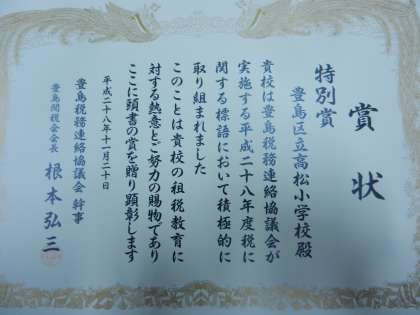 賞状
特別賞
豊島区立高松小学校殿
貴校は豊島税務連絡協議会が
実施する平成二十八年度税に
関する標語において積極的に
取り組まれました
このことは貴校の租税教育に
対する熱意とご努力の賜物であり
ここに頭書の賞を贈り顕彰します
平成二十八年十一月二十日
豊島税務連絡協議会 幹事
豊島間税会会長 根本弘三